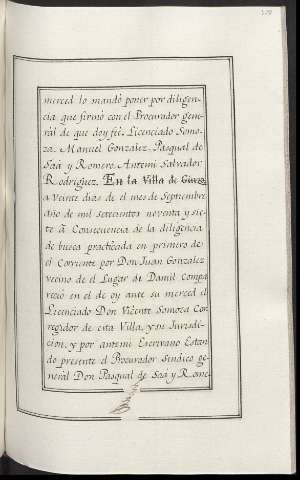 merced lo mandó poner por diligen-
cia que firmó con el Procurador gene-
rál de que doy fé. Licenciado Somo-
za. Manuel Gonzalez. Pasqual de
Saá y Romero. Antemi Salvador
Rodriguez. En la Villa de
a veinte dias de el mes de Septiembre
año de mil setecientos noventa y sie-
te à Consecuencia de la diligencia
de busca practicada en primero de
el Corriente por Don Juan Gonzalez
vecino de el Lugar de Damil compa
reció en el de oy ante su merced el
Licenciado Don Vicente Somoza Cor
regidor de esta Villa, y su Jurisdi-
cion, y por antemi Escrivano Estan
do presente el Procurador Sindico ge-
nerál Don Pasqual de Saá y Rome-